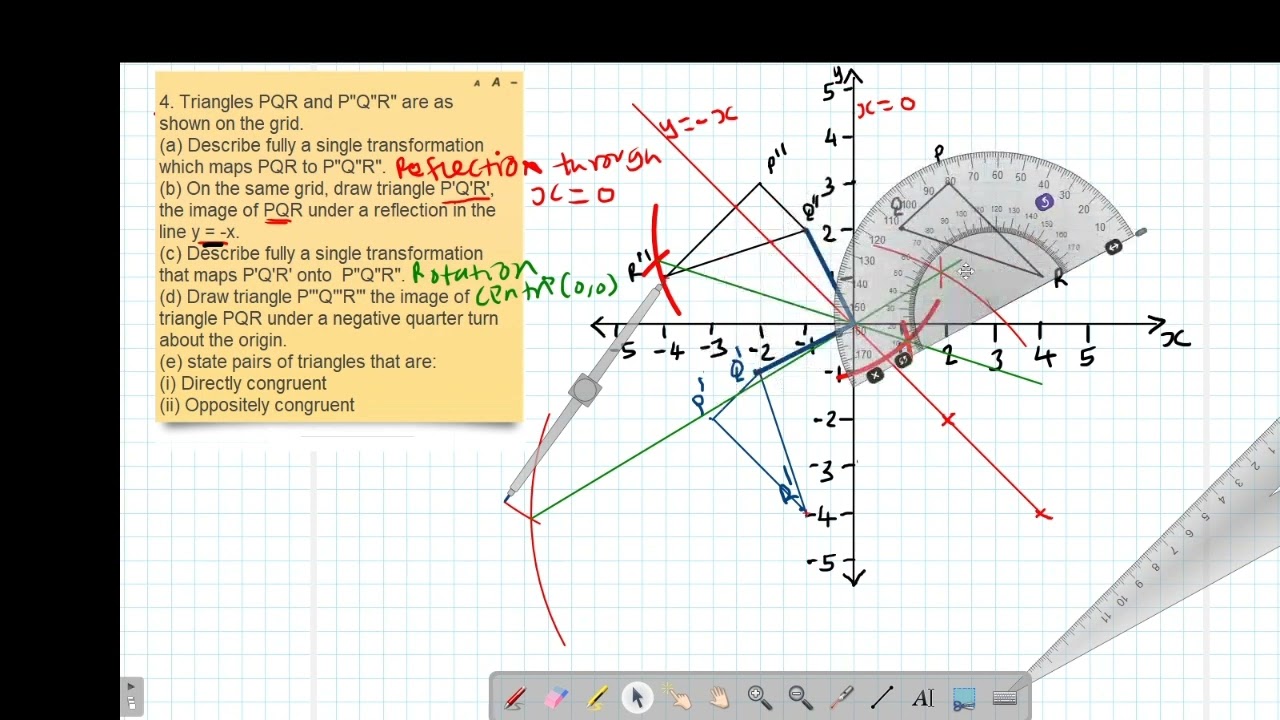 A A –
4. Triangles PQR and P"Q"R" are as
shown on the grid.
(a) Describe fully a single transformation
which maps PQR to P"Q"R". Reflection through
x = 0
(b) On the same grid, draw triangle P'Q'R',
the image of PQR under a reflection in the
line y = -x.
(c) Describe fully a single transformation
that maps P'Q'R' onto P"Q"R". Rotation
centre (0,0)
(d) Draw triangle P'''Q'''R''' the image of
triangle PQR under a negative quarter turn
about the origin.
(e) state pairs of triangles that are:
(i) Directly congruent
(ii) Oppositely congruent
y
x = 0
y = -x
5
4
3
2
1
-5 -4 -3 -2 -1 2 3 4 5
x
-1
-2
-3
-4
-5
P"
Q"
R"
P
Q
R
Q'
P'
R'
AI